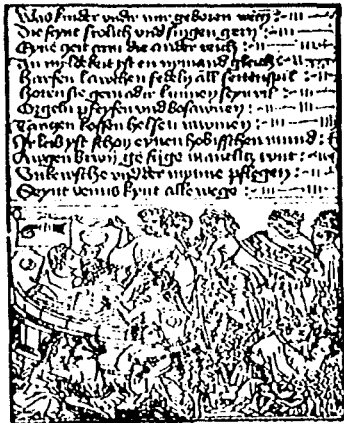 Was kinder vnder mir geboren
Die synt frolich vnd singen gern
Eyne zeit arm die ander reich
In myldkeit yst en nymand gleich
Harfen lawthen all seitenspil
Horen sie gern kunnen seyn vil
Orgeln pfeyfen vnd bosawnen
Tanczen kossen helsen
Ir leib yst schon eynen hobisschen mund
Awgen
Vnkewsche vnd der mynne pflegen
Seynt venus kynt alle wege